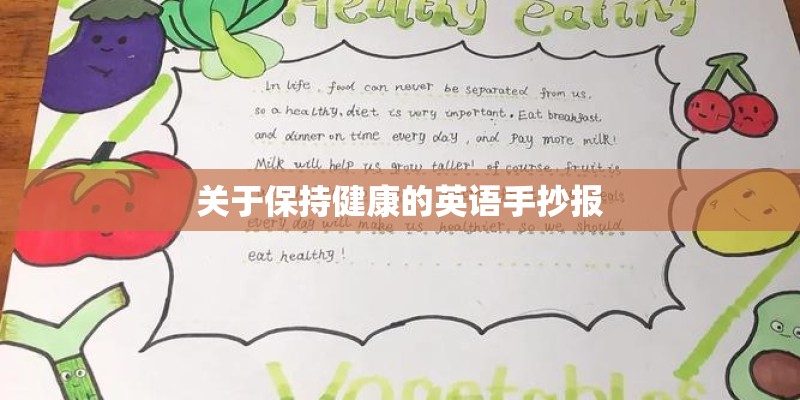 Healthy eating
In life , food can never be separated from us,
so a healthy, diet is very important. Eat breakfast,
and dinner on time every day , and Pay more milk!
Milk will help us grow taller! of course, fruit is
关于保持健康的英语手抄报
every day will make us healthier, so we should
eat healthy !
Vegetables